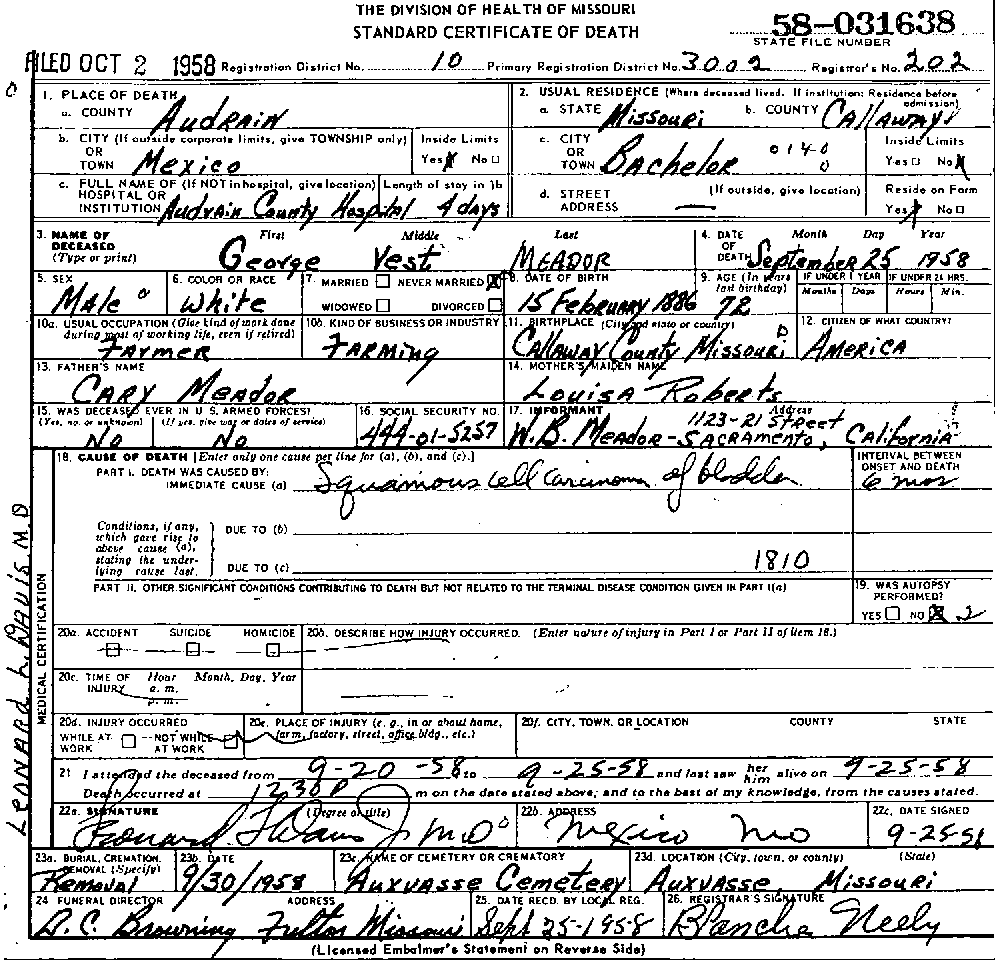 THE DIVISION OF HEALTH OF MISSOURI
STANDARD CERTIFICATE OF DEATH
58-031638
STATE FILE NUMBER
FILED OCT 2 1958 Registration District No. 10 Primary Registration District No. 3002 Registrar's No. 202
1. PLACE OF DEATH
a. COUNTY Audrain
2. USUAL RESIDENCE (Where deceased lived. If institution: Residence before admission)
a. STATE Missouri b. COUNTY Callaway
b. CITY (If outside corporate limits, give TOWNSHIP only) OR TOWN Mexico
Inside Limits Yes X No □
c. CITY OR TOWN Bachelor 0140 0
Inside Limits Yes □ No X
c. FULL NAME OF (If NOT in hospital, give location) HOSPITAL OR INSTITUTION Audrain County Hospital
Length of stay in 1b 4 days
d. STREET ADDRESS (If outside, give location) —
Reside on Farm Yes X No □
3. NAME OF DECEASED (Type or print)
First Middle Last
George Vest Meador
4. DATE OF DEATH Month Day Year
September 25 1958
5. SEX Male
6. COLOR OR RACE White
7. MARRIED □ NEVER MARRIED X
WIDOWED □ DIVORCED □
8. DATE OF BIRTH 15 February 1886
9. AGE (In years last birthday) 72
IF UNDER 1 YEAR Months Days
IF UNDER 24 HRS. Hours Min.
10a. USUAL OCCUPATION (Give kind of work done during most of working life, even if retired) Farmer
10b. KIND OF BUSINESS OR INDUSTRY Farming
11. BIRTHPLACE (City and state or country) Callaway County Missouri
12. CITIZEN OF WHAT COUNTRY? America
13. FATHER'S NAME Cary Meador
14. MOTHER'S MAIDEN NAME Louisa Roberts
15. WAS DECEASED EVER IN U. S. ARMED FORCES?
(Yes, no, or unknown) (If yes, give war or dates of service)
No No
16. SOCIAL SECURITY NO. 494-01-5257
17. INFORMANT Address
W.B. Meador - 1123-21 Street Sacramento, California
18. CAUSE OF DEATH [Enter only one cause per line for (a), (b), and (c).]
PART I. DEATH WAS CAUSED BY:
IMMEDIATE CAUSE (a) Squamous cell carcinoma of bladder
INTERVAL BETWEEN ONSET AND DEATH
6 mos
Conditions, if any, which gave rise to above cause (a), stating the underlying cause last.
DUE TO (b)
DUE TO (c) 1810
PART II. OTHER SIGNIFICANT CONDITIONS CONTRIBUTING TO DEATH BUT NOT RELATED TO THE TERMINAL DISEASE CONDITION GIVEN IN PART I(a)
19. WAS AUTOPSY PERFORMED?
YES □ NO X 2
20a. ACCIDENT SUICIDE HOMICIDE
20b. DESCRIBE HOW INJURY OCCURRED. (Enter nature of injury in Part I or Part II of item 18.)
20c. TIME OF INJURY Hour a. m. p. m. Month, Day, Year
20d. INJURY OCCURRED
WHILE AT WORK □ NOT WHILE AT WORK □
20e. PLACE OF INJURY (e. g., in or about home, farm, factory, street, office bldg., etc.)
20f. CITY, TOWN, OR LOCATION COUNTY STATE
21. I attended the deceased from 9-20-58 to 9-25-58 and last saw her him alive on 9-25-58
Death occurred at 1230 P m on the date stated above; and to the best of my knowledge, from the causes stated.
22a. SIGNATURE (Degree or title)
Leonard L Davis Jr MD
22b. ADDRESS
Mexico Mo
22c. DATE SIGNED
9-25-58
23a. BURIAL, CREMATION, REMOVAL (Specify) Removal
23b. DATE 9/30/1958
23c. NAME OF CEMETERY OR CREMATORY Auxvasse Cemetery
23d. LOCATION (City, town, or county) (State)
Auxvasse, Missouri
24. FUNERAL DIRECTOR ADDRESS
D.C. Browning Fulton Missouri
25. DATE RECD. BY LOCAL REG. Sept 25-1958
26. REGISTRAR'S SIGNATURE
Blanche Neely
(Licensed Embalmer's Statement on Reverse Side)
MEDICAL CERTIFICATION
Leonard L. Davis M.D